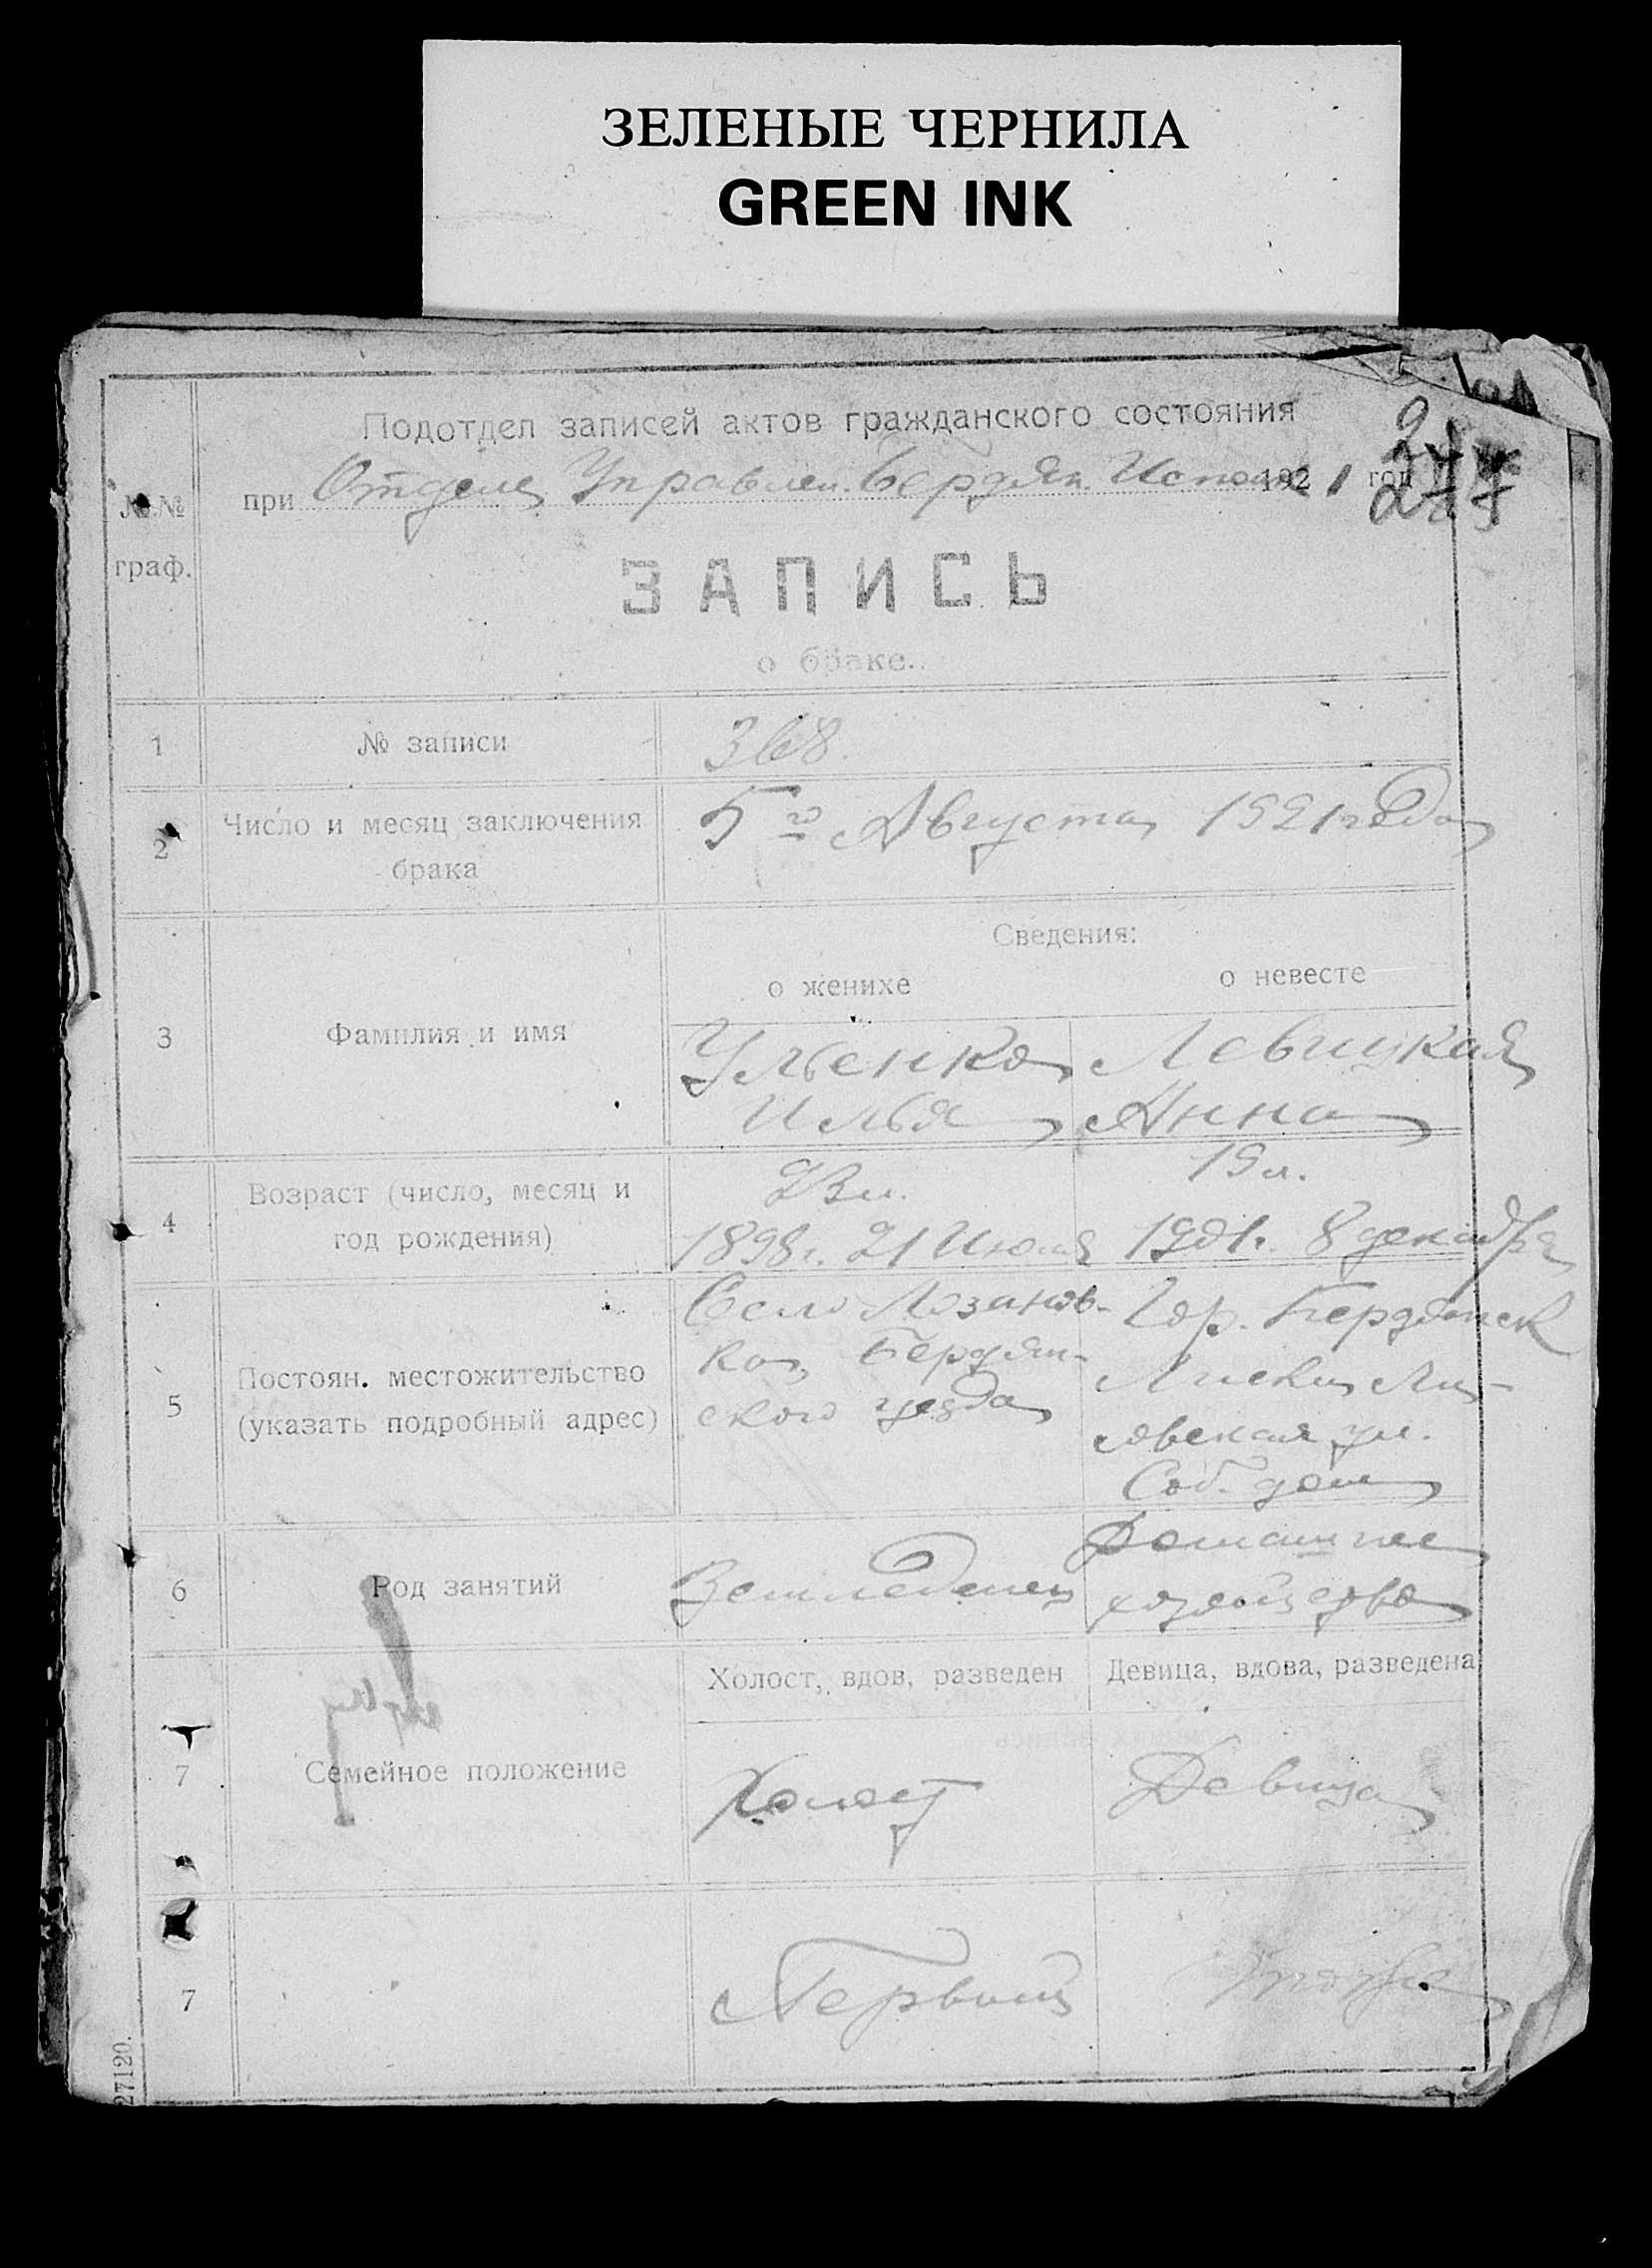 ЗЕЛЕНЫЕ ЧЕРНИЛА
GREEN INK
Подотдел записей актов гражданского состояния
при Отделе Управлен. Бердян. Исполк 1921 год
№№
граф.
ЗАПИСЬ
о браке.
1 № записи 368.
2 Число и месяц заключения брака
5го Августа 1921 года
Сведения:
о женихе о невесте
3 Фамилия и имя
Ульенко Левицкая
Илья Анна
4 Возраст (число, месяц и
год рождения)
23 л. 19 л.
1898 г. 21 Июля 1901 г. 8 декабря
5 Постоян. местожительство
(указать подробный адрес)
Село Лозанов-
ка, Бердян-
ского уезда
Гор. Бердянск
Лиски
совская ул.
Соб. дом
6 Род занятий
Земледелец
Домашнее
хозяйство
Холост, вдов, разведен Девица, вдова, разведена
7 Семейное положение
Холост Девица
7 Первый
27120.